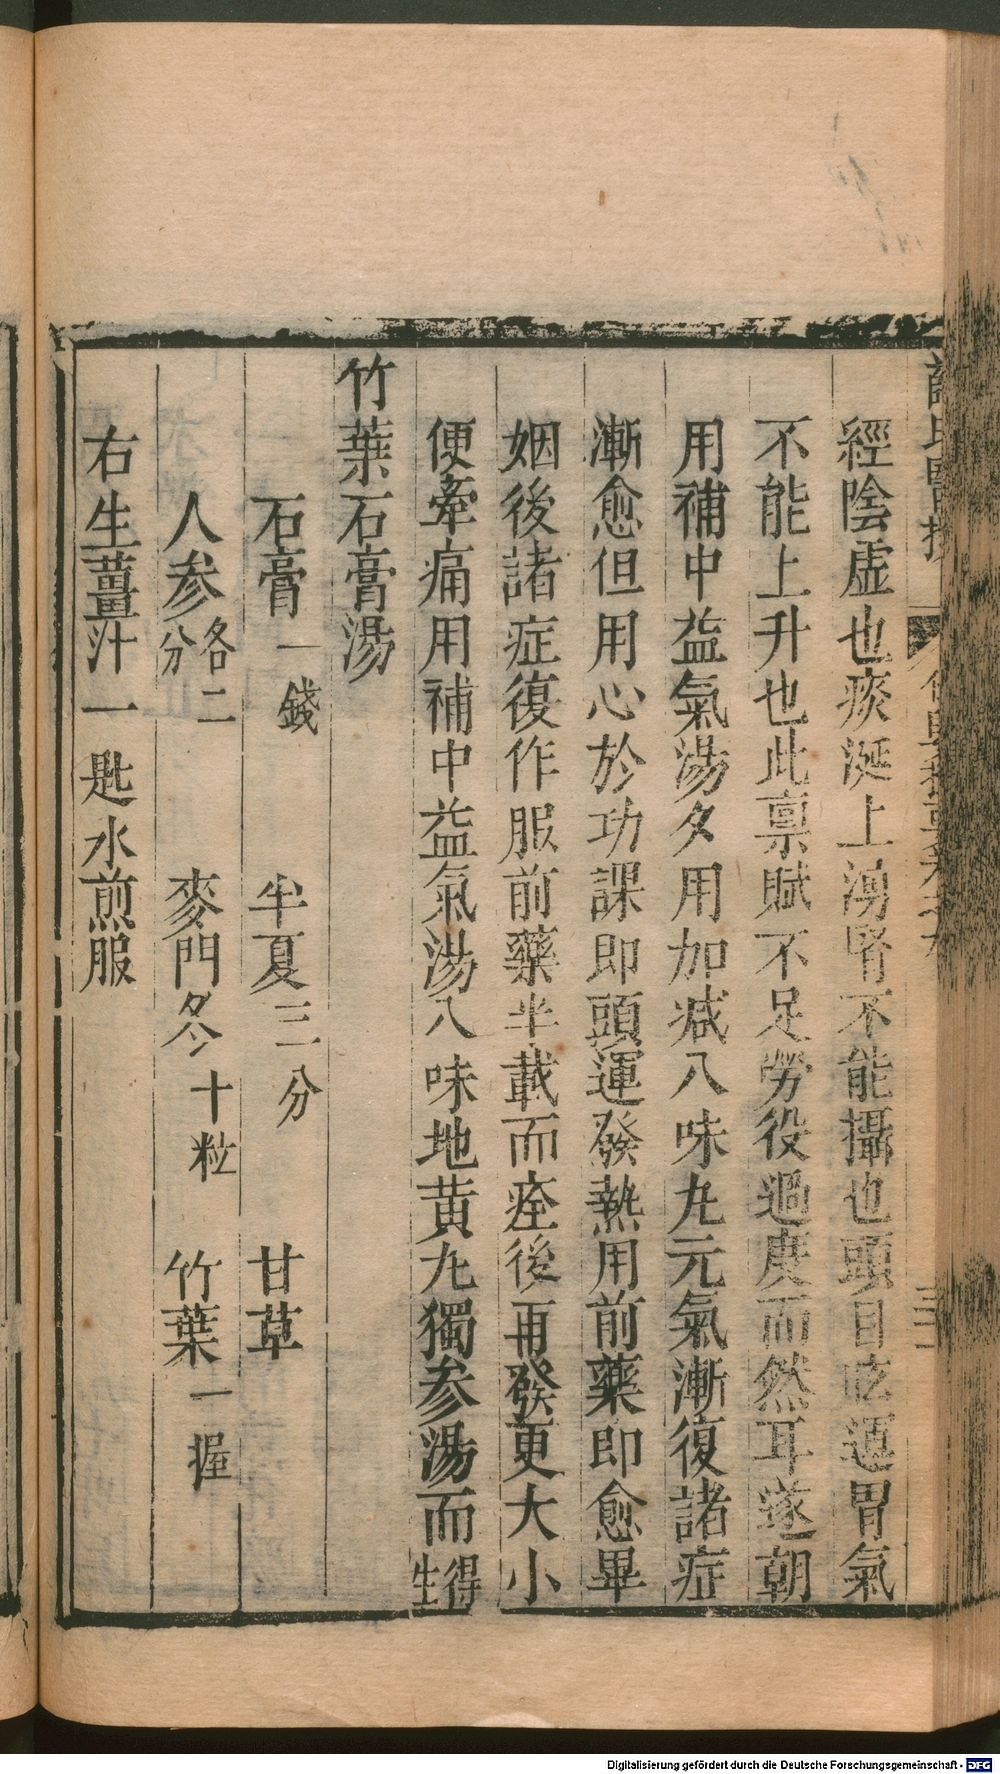 經陰虛也痰涎上湧腎不能攝也頭目眩運胃氣
不能上升也此禀賦不足勞役過度而然耳遂朝
用補中益氣湯夕用加减八味丸元氣漸復諸症
漸愈但用心於功課即頭運發熱用前藥即愈畢
姻後諸症復作服前藥半載而痊後再發更大小
便牽痛用補中益氣湯八味地黄丸獨参湯而得生
竹葉石膏湯
石膏一錢 半夏三分 甘草
人参各二分 麥門冬十粒 竹葉一握
右生薑汁一匙水煎服
Digitalisierung gefördert durch die Deutsche Forschungsgemeinschaft - DFG